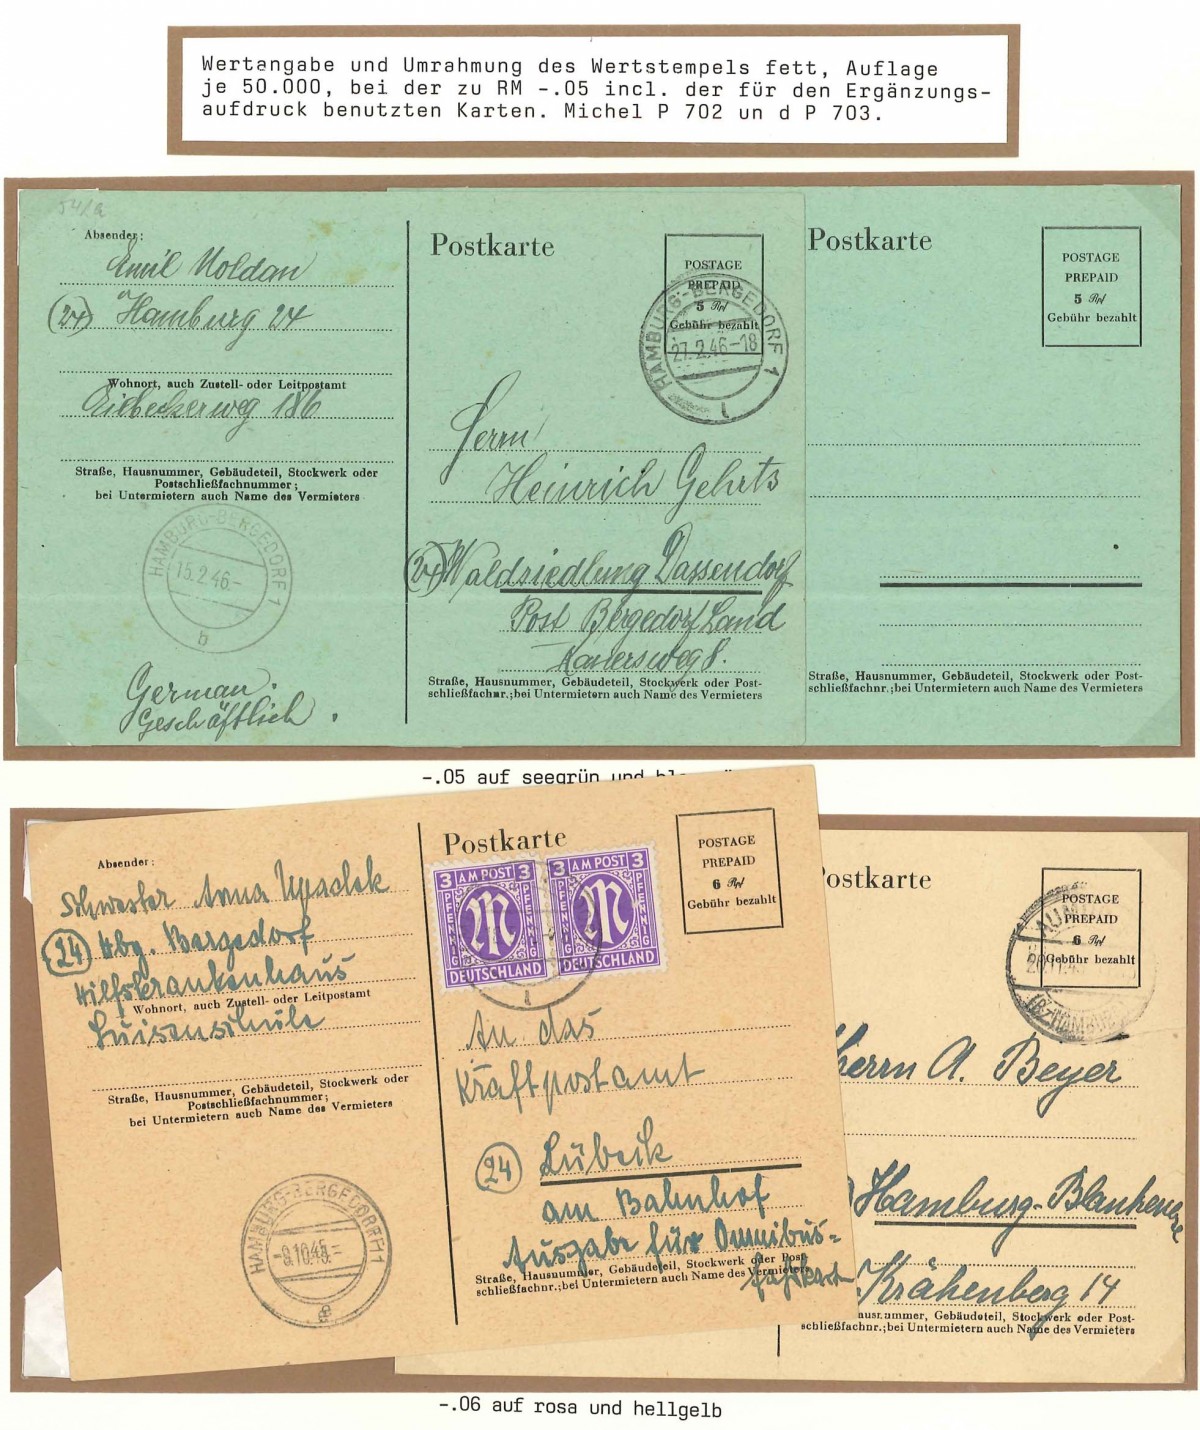 Wertangabe und Umrahmung des Wertstempels fett, Auflage
je 50.000, bei der zu RM -.05 incl. der für den Ergänzungs-
aufdruck benutzten Karten. Michel P 702 un d P 703.
Absender:
Emil Moldan
(24) Hamburg 24
Wohnort, auch Zustell- oder Leitpostamt
Eilbeckerweg 186
Straße, Hausnummer, Gebäudeteil, Stockwerk oder
Postschließfachnummer;
bei Untermietern auch Name des Vermieters
HAMBURG-BERGEDORF 1
15.2.46.-
b
German.
Geschäftlich.
Postkarte
POSTAGE
PREPAID
5 Rpf
Gebühr bezahlt
HAMBURG-BERGEDORF 1
27.2.46-18
l
Herrn
Heinrich Gehrts
(24) Waldsiedlung Dassendorf
Post Bergedorf Land
Straße, Hausnummer, Gebäudeteil, Stockwerk oder Post-
schließfachnr.; bei Untermietern auch Name des Vermieters
Postkarte
POSTAGE
PREPAID
5 Rpf
Gebühr bezahlt
Straße, Hausnummer, Gebäudeteil, Stockwerk oder Post-
schließfachnr.; bei Untermietern auch Name des Vermieters
-.05 auf seegrün und
Absender:
Schwester Anna
(24) Hbg. Bergedorf
Hilfskrankenhaus
Wohnort, auch Zustell- oder Leitpostamt
Luisenschule
Straße, Hausnummer, Gebäudeteil, Stockwerk oder
Postschließfachnummer;
bei Untermietern auch Name des Vermieters
HAMBURG-BERGEDORF 1
-9.10.45.=
Postkarte
3 AM POST 3
PFENNIG PFENNIG
M
DEUTSCHLAND
3 AM POST 3
PFENNIG PFENNIG
M
DEUTSCHLAND
l
POSTAGE
PREPAID
6 Rpf
Gebühr bezahlt
An das
Kraftpostamt
(24) Lübeck
am Bahnhof
Ausgabe für Omnibus=
Straße, Hausnummer, Gebäudeteil, Stockwerk oder Post-
schließfachnr.; bei Untermietern auch Name des Vermieters
ostkarte
POSTAGE
PREPAID
6 Rpf
Gebühr bezahlt
Herrn A. Beyer
Hamburg-Blankenese
Krähenberg 14
ausnummer, Gebäudeteil, Stockwerk oder Post-
schließfachnr.; bei Untermietern auch Name des Vermieters
-.06 auf rosa und hellgelb